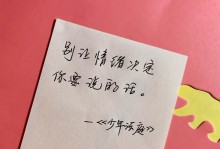 别让情绪决定
你要说的话。
—《少年话庭》